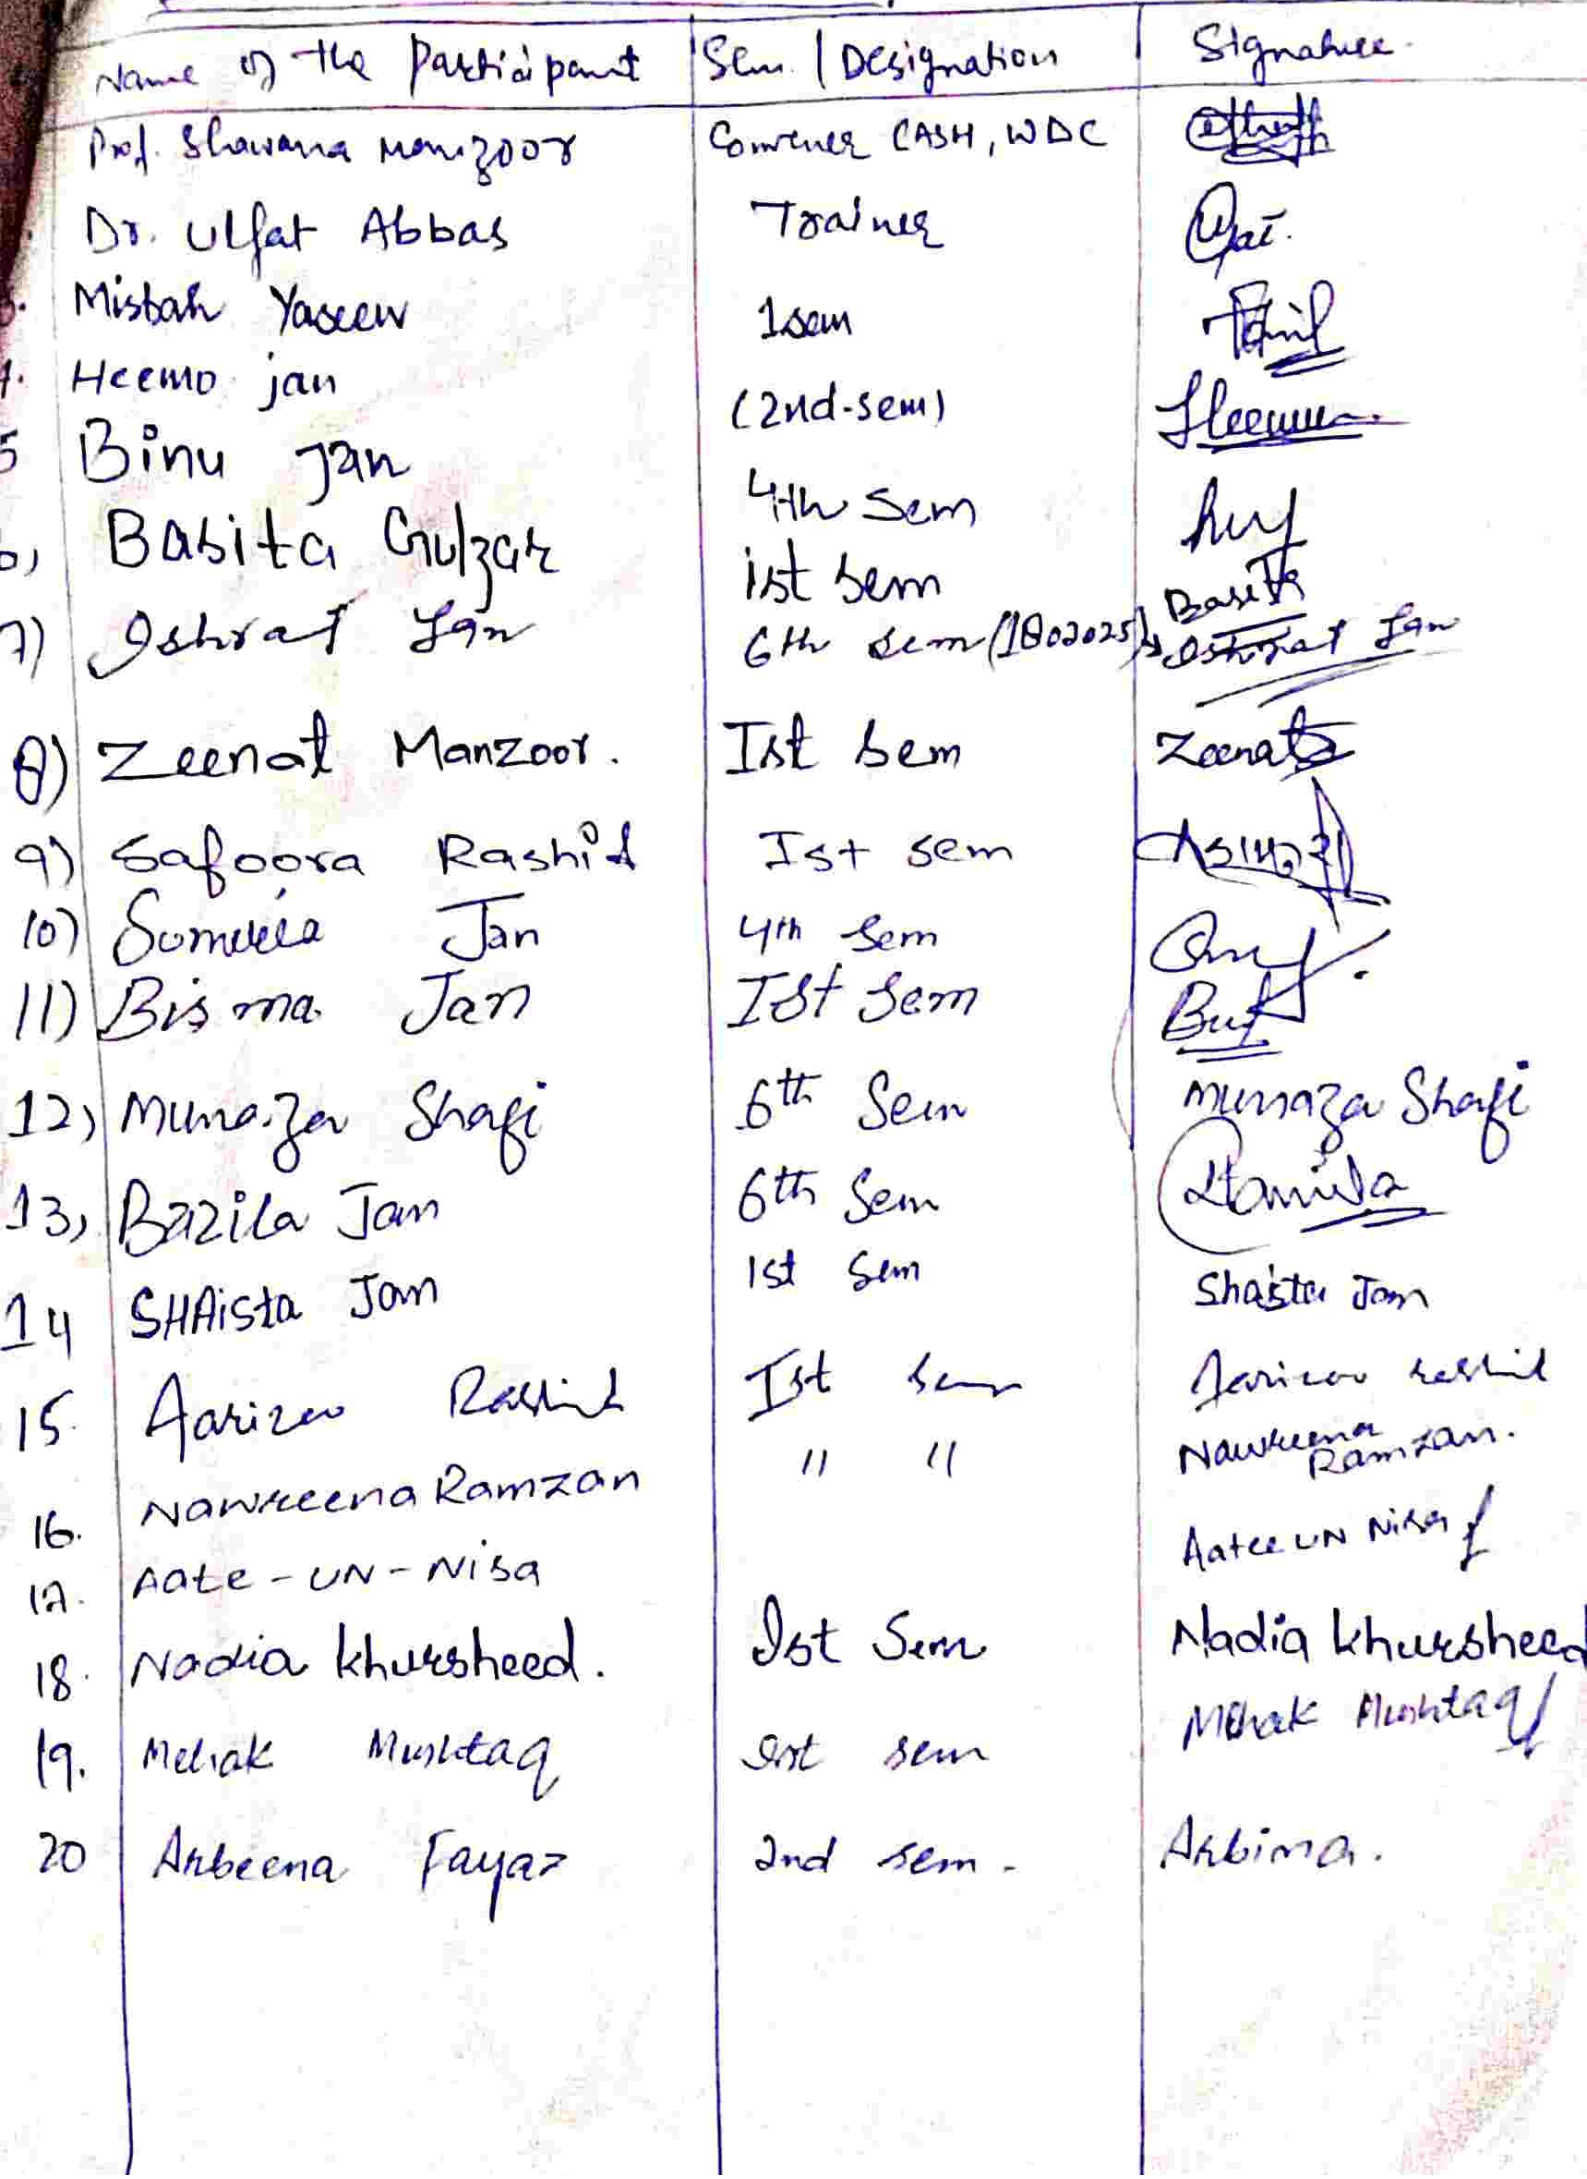 Name of the Participant Sem. / Designation Signature
Prof. Shawana Manzoor Convener CASH, WDC
Dr. Ulfat Abbas Trainer
Misbah Yaseen 1sem
4. Heemo jan (2nd-sem)
5 Binu Jan 4th Sem
6) Basita Gulzar ist sem Basita
7) Ishrat Jan 6th sem (1802025) Ishrat Jan
8) Zeenat Manzoor. Ist sem Zeenat
9) Safoora Rashid Ist sem
10) Sumeera Jan 4th Sem
11) Bisma Jan Ist Sem
12) Munaza Shafi 6th Sem Munaza Shafi
13, Bazila Jan 6th Sem
14 SHAista Jan 1st Sem Shaista Jan
15. Aarizoo Rashid Ist sem Aarizoo Rashid
16. Nawreena Ramzan " " Nawreena Ramzan.
17. Aate-UN-Nisa Aatee UN Nisa
18. Nadia khursheed. Ist Sem Nadia khursheed
19. Mehak Mushtaq Ist sem Mehak Mushtaq
20 Arbeena Fayaz 2nd sem. Arbina.